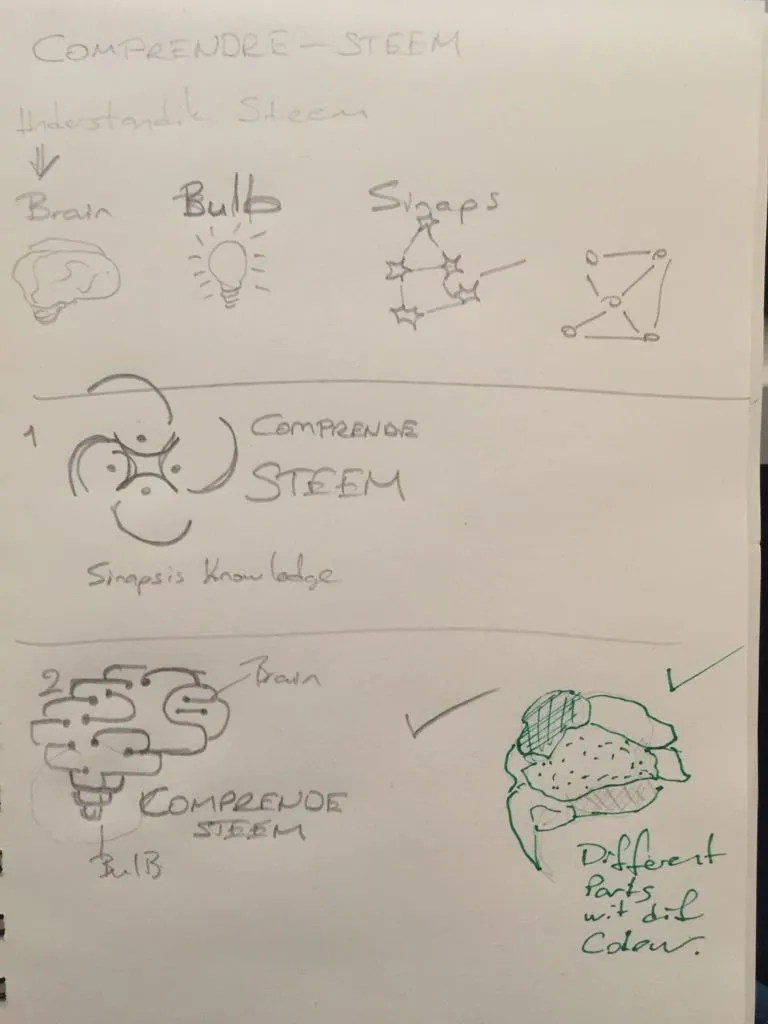 COMPRENDRE – STEEM
Understandik Steem
Brain
Bulb
Sinaps
1
COMPRENDE
STEEM
Sinapsis Knowledge
2
Brain
COMPRENDE
STEEM
BulB
Different
Parts
wit dif
Colour.